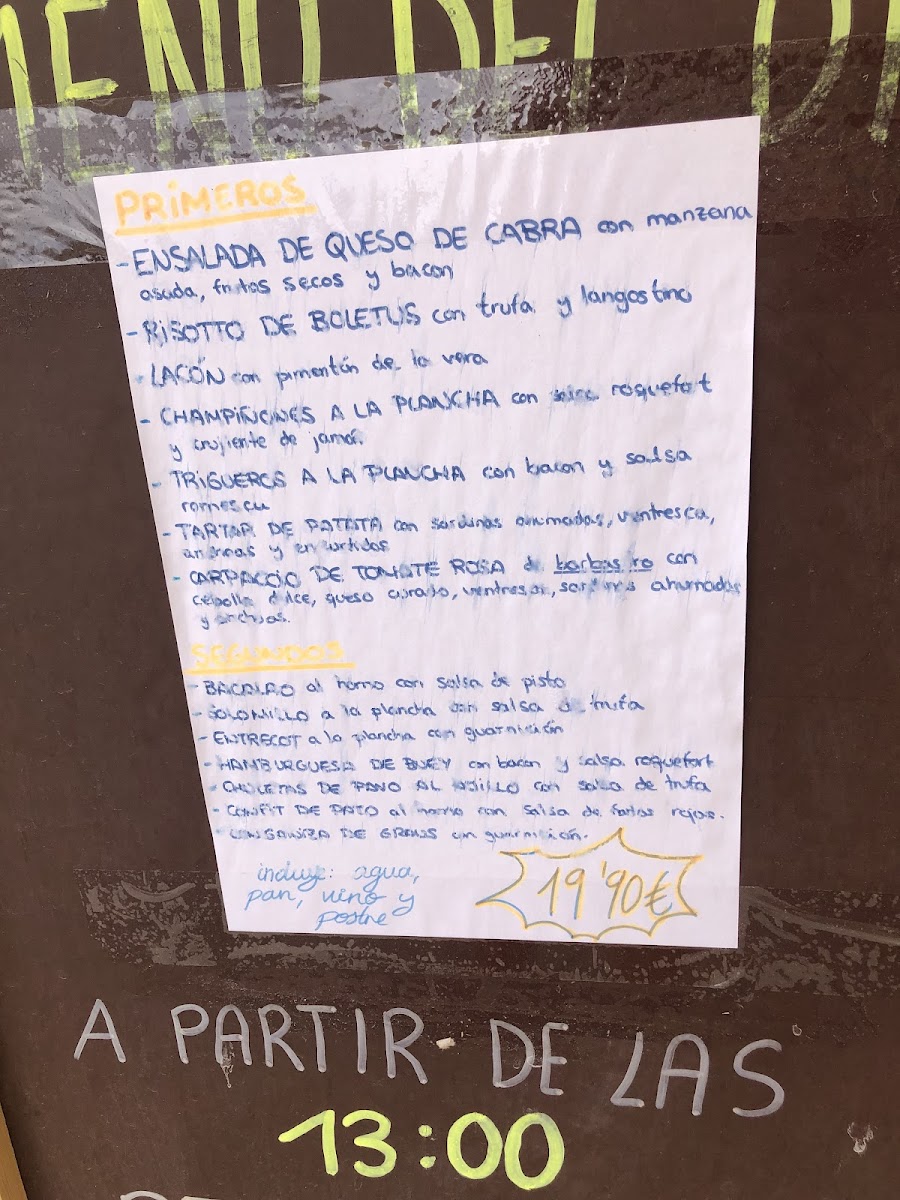 MENÚ DEL DI
PRIMEROS
- ENSALADA DE QUESO DE CABRA con manzana
asada, frutos secos y bacon
- RISOTTO DE BOLETUS con trufa y langostino
- LACÓN con pimentón de la vera
- CHAMPIÑONES A LA PLANCHA con roquefort
y crujiente de jamón.
- TRIGUEROS A LA PLANCHA con bacon y salsa
romescu
- TARTAR DE PATATA con sardinas ahumadas, ventresca,
y encurtidos
- CARPACCIO DE TOMATE ROSA de barbastro con
cebolla dulce, queso curado, ventresca, sardinas ahumadas
y anchoas.
SEGUNDOS
- BACALAO al horno con salsa de pisto
- SOLOMILLO a la plancha con salsa de trufa
- ENTRECOT a la plancha con guarnición
- HAMBURGUESA DE BUEY con bacon y salsa roquefort
- CHULETAS DE PAVO AL AJILLO con salsa de trufa
- CONFIT DE PATO al horno con salsa de frutos rojos.
- LONGANIZA DE GRAUS con guarnición.
incluye: agua,
pan, vino y
postre
19'90€
A PARTIR DE LAS
13:00